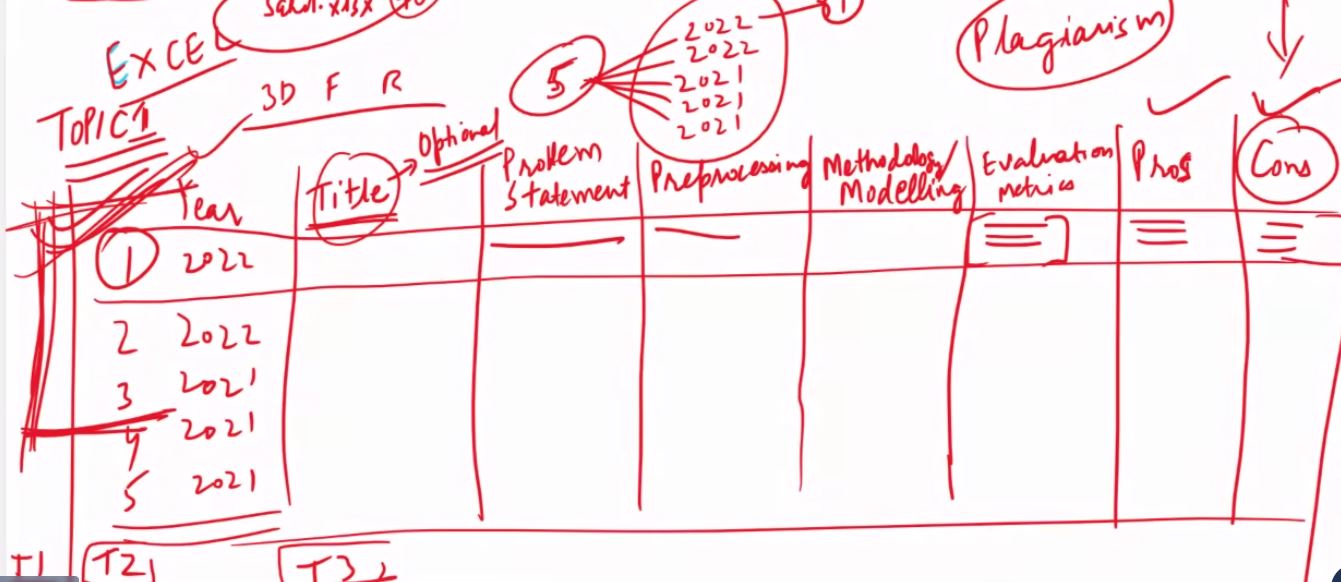 EXCEL
TOPIC 1
3D F R
5
2022
2022
2021
2021
2021
1
Plagiarism
Year
Title
Optional
Problem
Statement
Preprocessing
Methodology/
Modelling
Evaluation
metrics
Pros
Cons
1 2022
2 2022
3 2021
4 2021
5 2021
T1
T2
T3